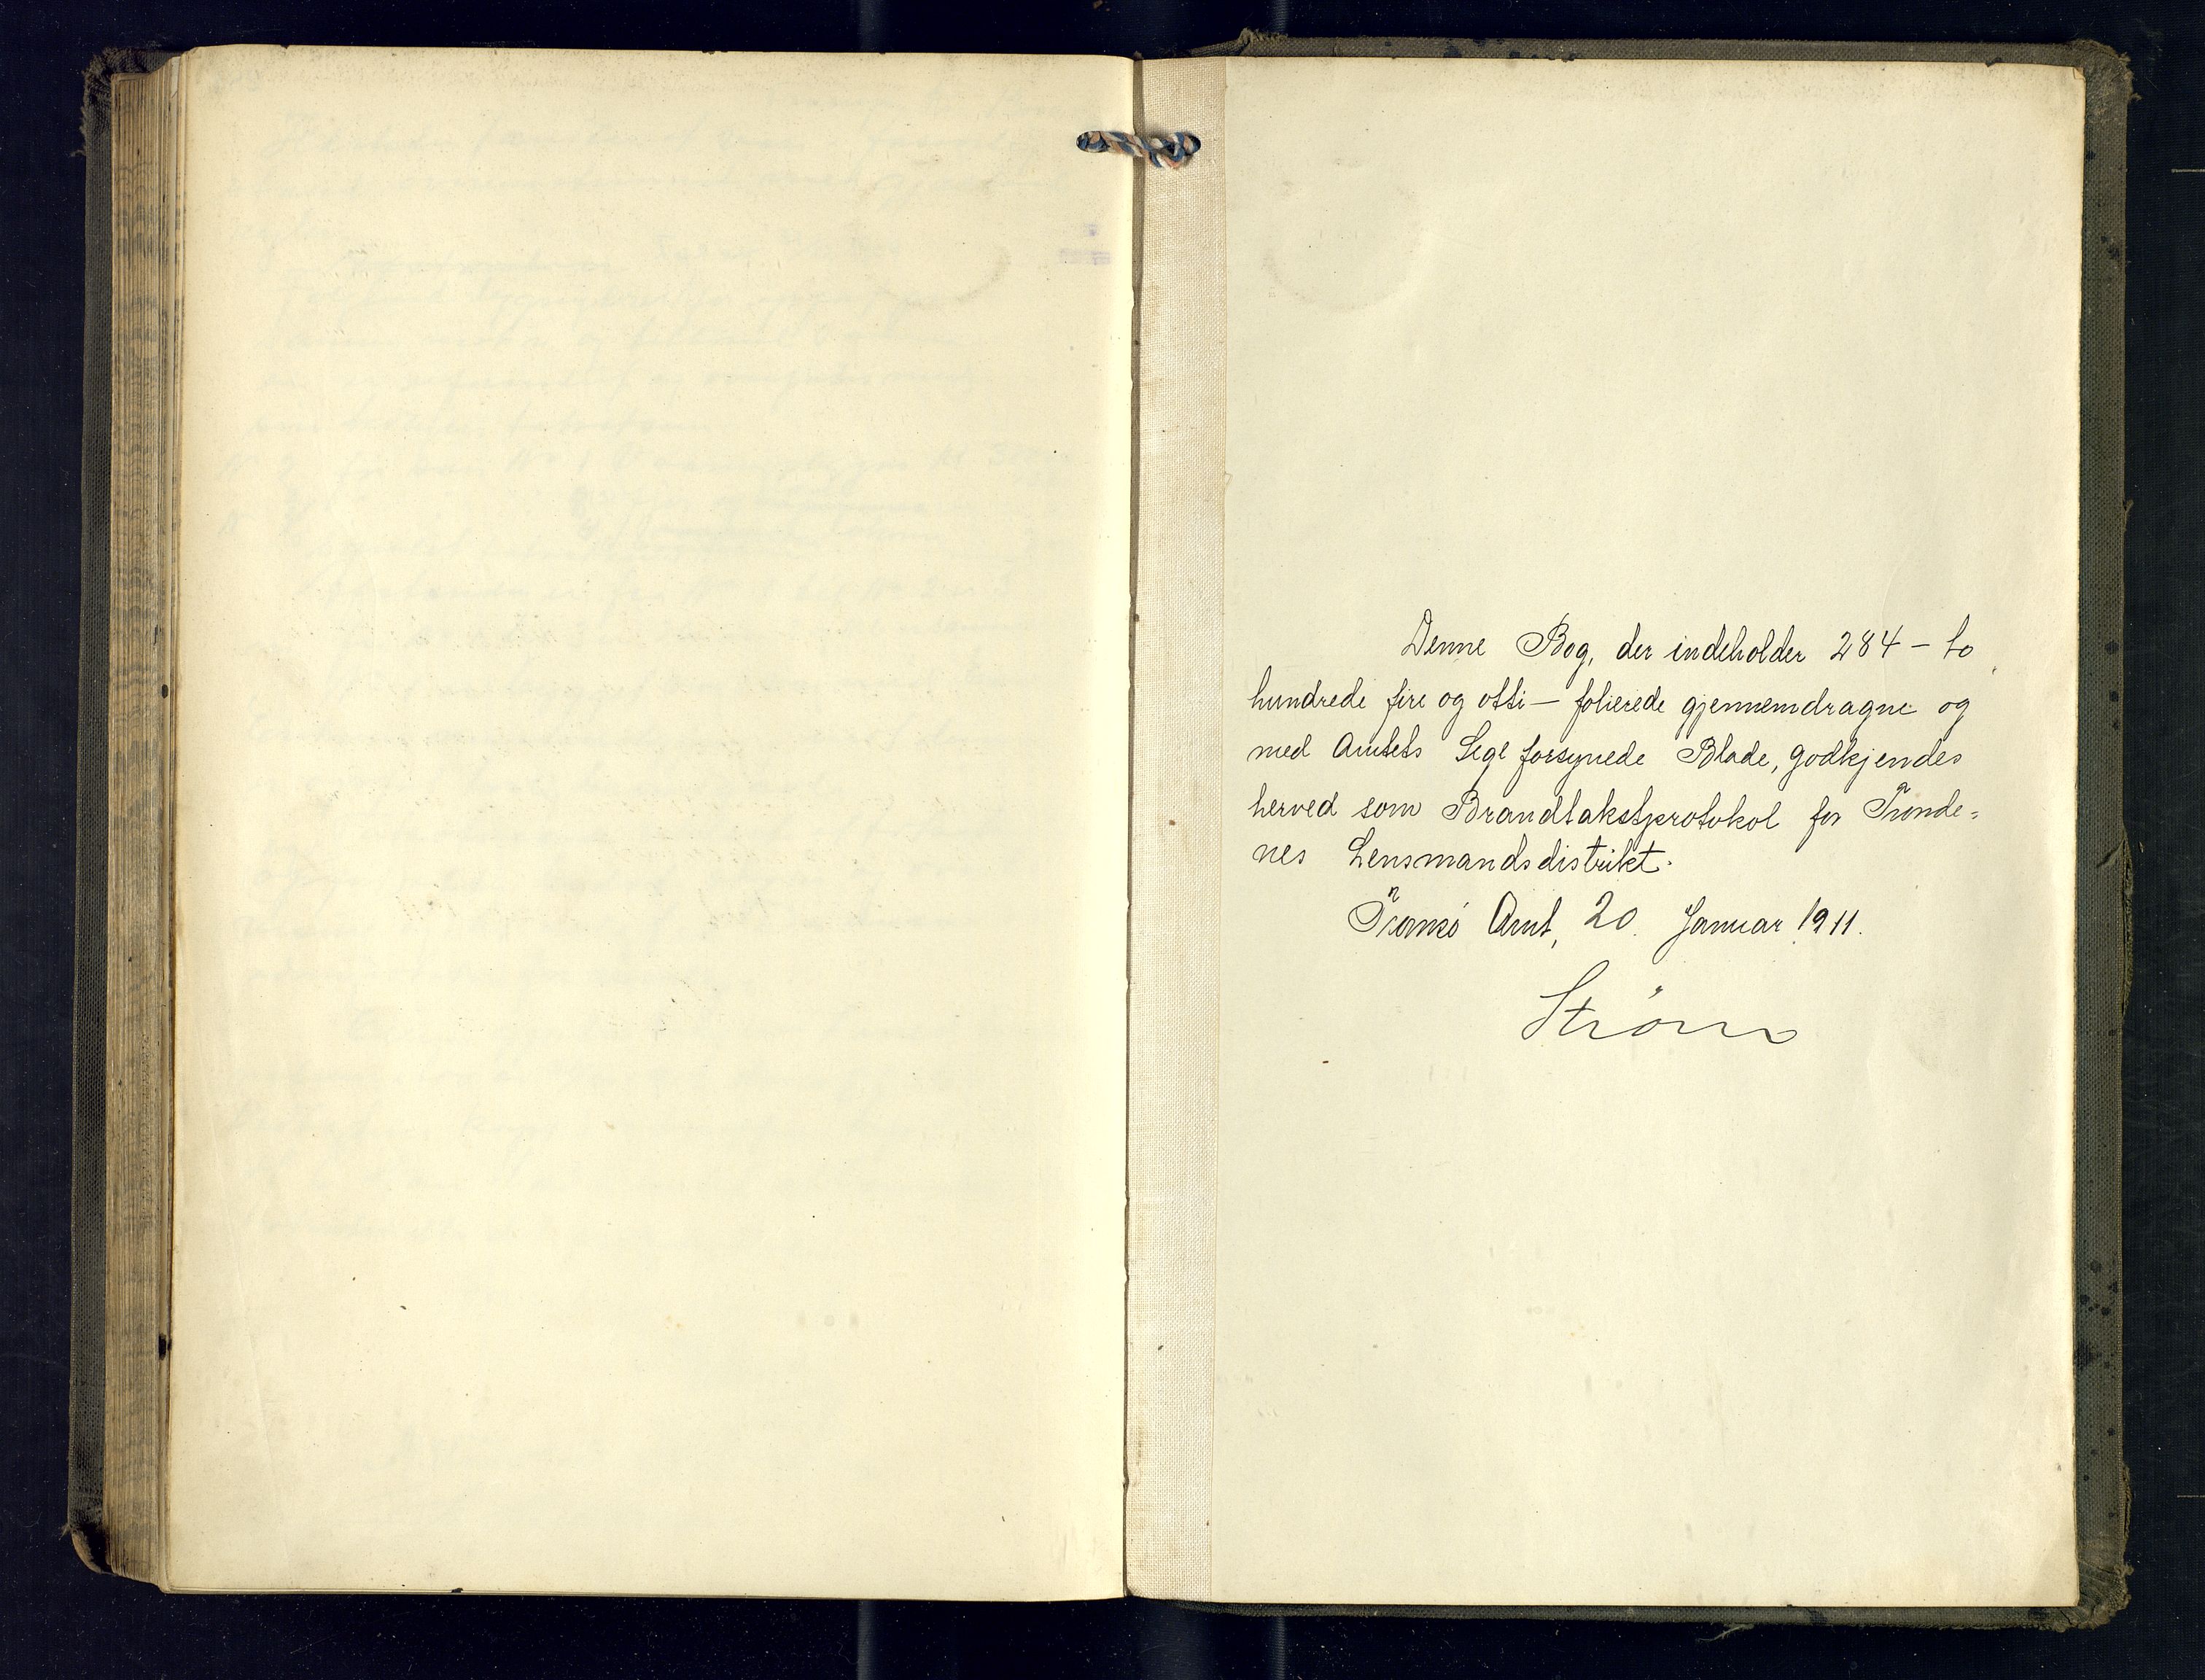 Denne Bog, der indeholder 284 – to
hundrede fire og otti – folierede gjennemdragne og
med Amtets Segl forsynede Blade, godkjendes
herved som Brandtakstprotokol for Tronde=
nes Lensmandsdistrikt.
Tromsø Amt, 20. Januar 1911.
Strøm